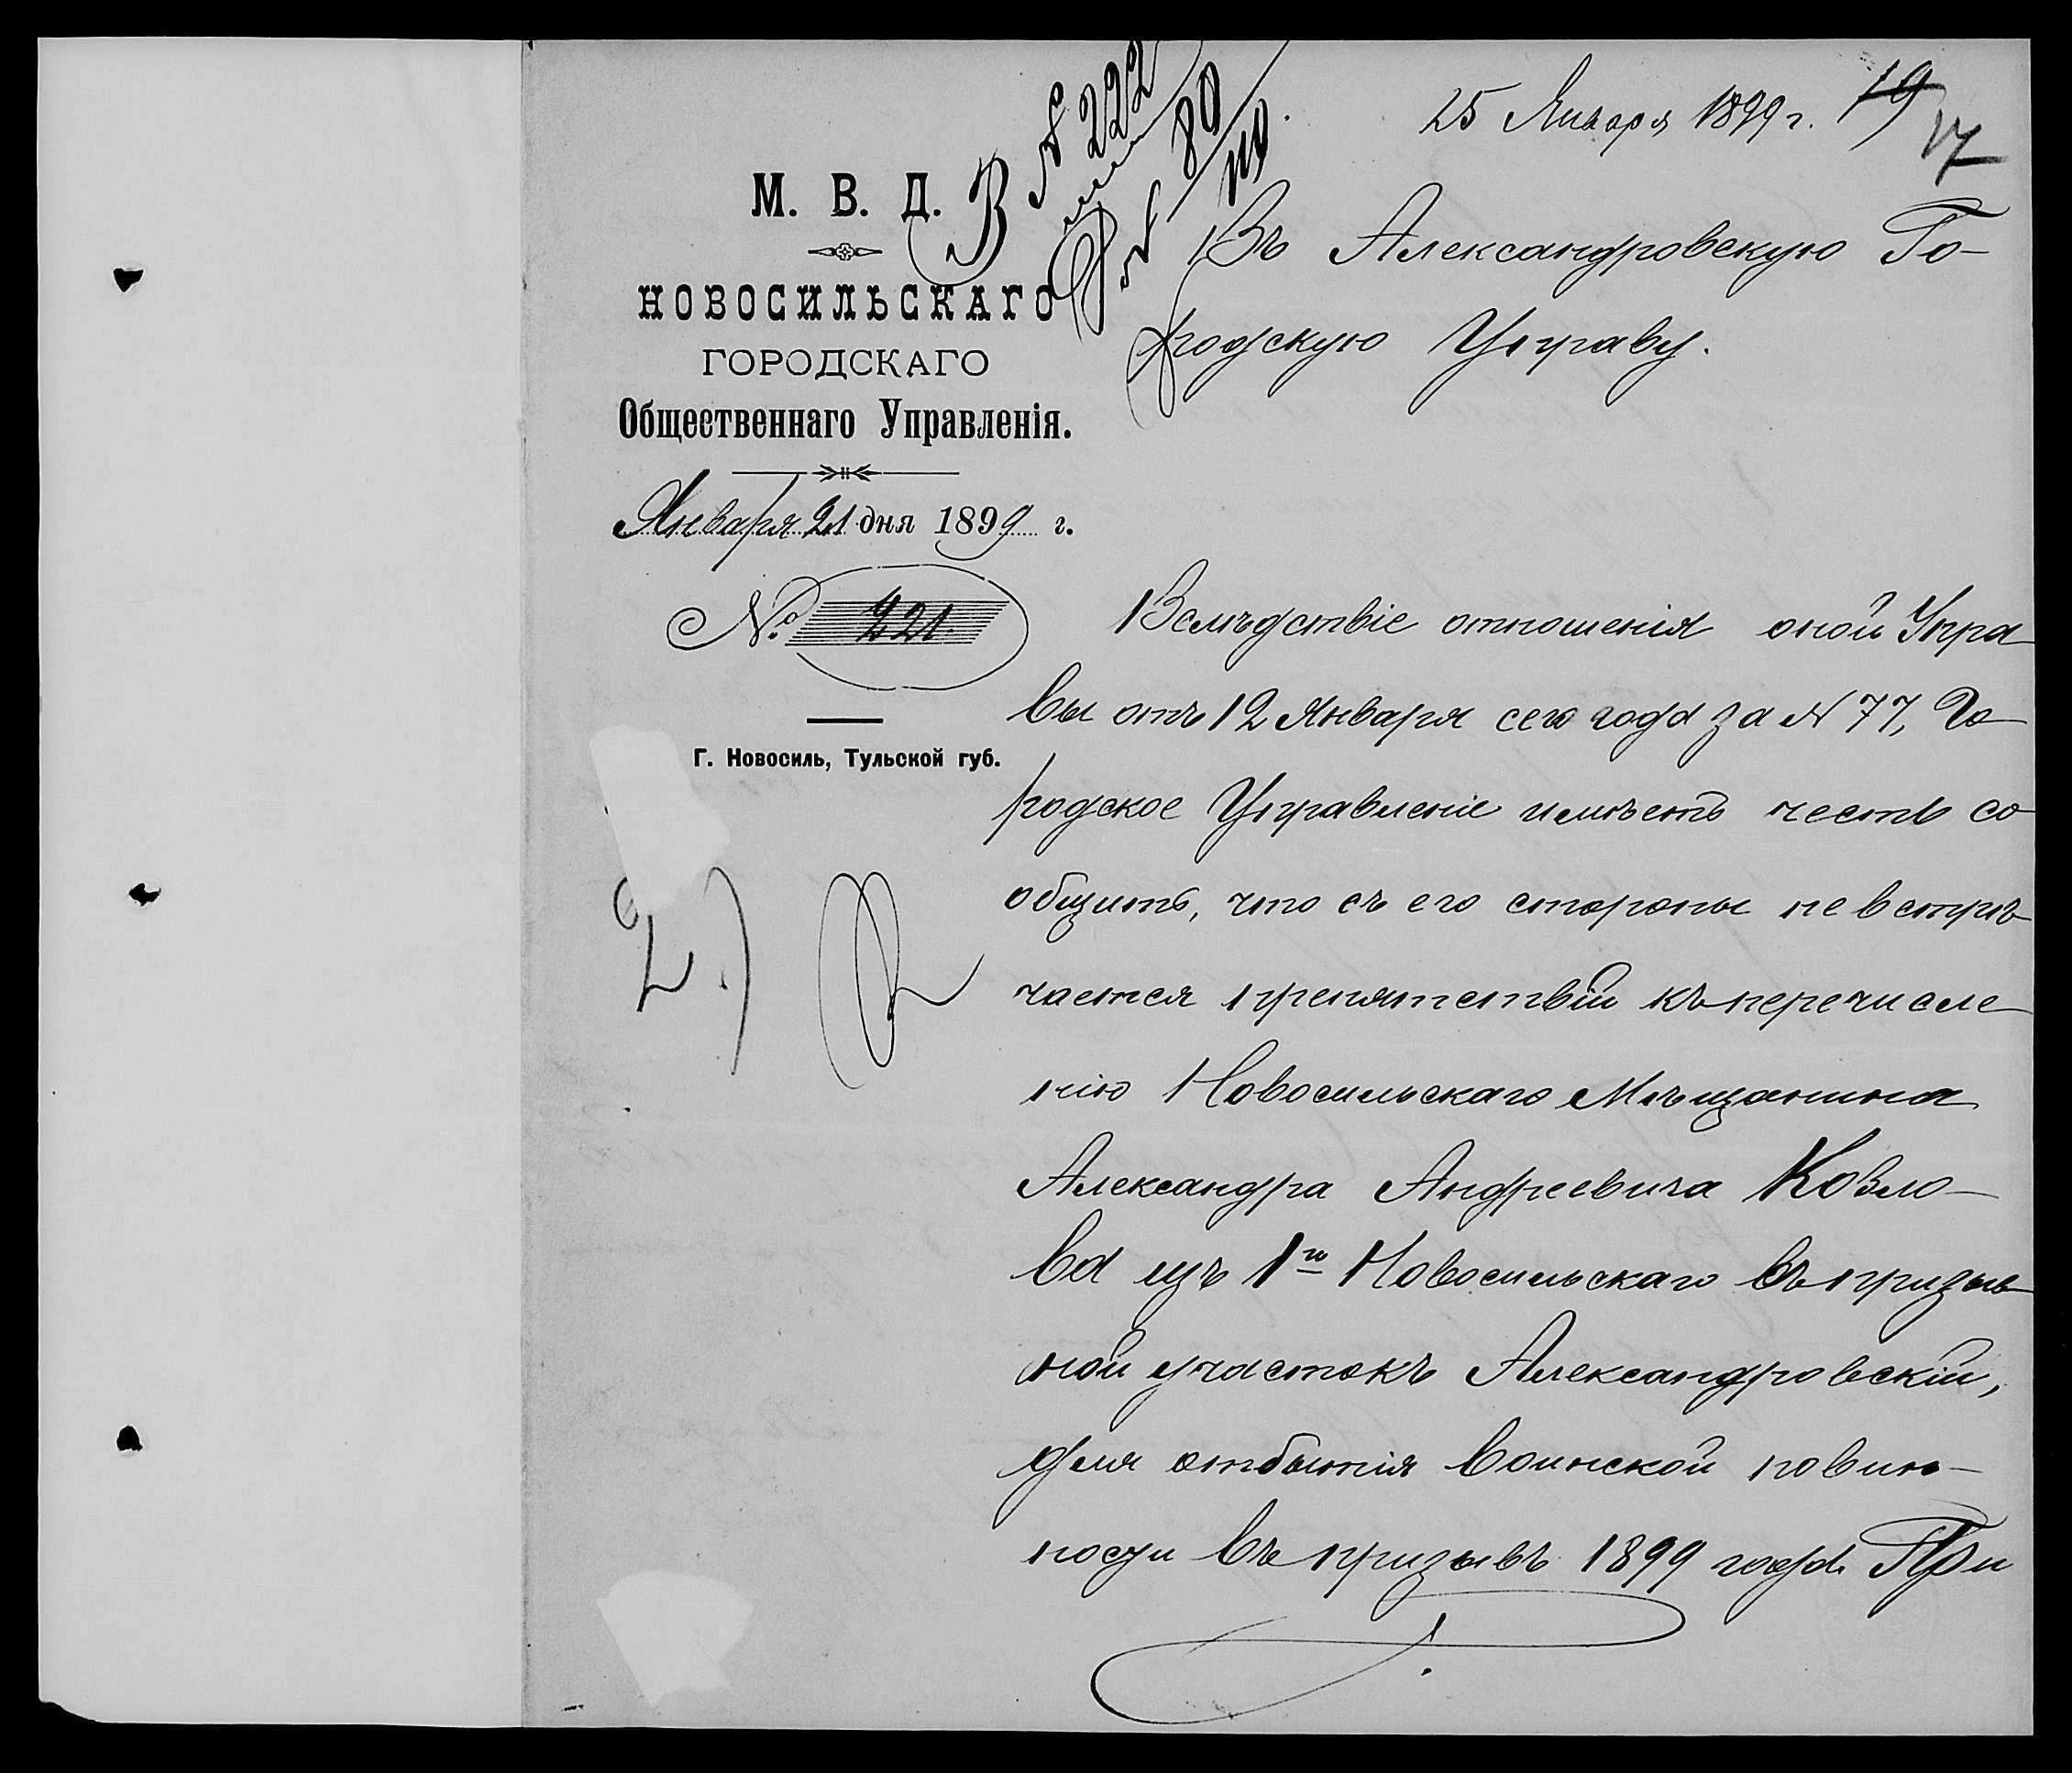 25 Января 1899 г. 19
17
№ 222
В
М. В. Д.
НОВОСИЛЬСКАГО
ГОРОДСКАГО
Общественнаго Управленія.
Января 21 дня 1899 г.
№ 221.
Г. Новосиль, Тульской губ.
2.)
Въ Александровскую Го-
родскую Управу.
Вслѣдствіе отношенія оной Упра
вы отъ 12 Января сего года за N 77, Го-
родское Управленіе имѣетъ честь со
общить, что съ его стороны не встрѣ
чается препятствій къ перечисле
нію Новосильскаго Мѣщанина
Александра Андреевича Козло-
ва изъ 1го Новосильскаго въ призыв
ной участокъ Александровскій,
для отбытія воинской повин-
ности въ призывъ 1899 года. При